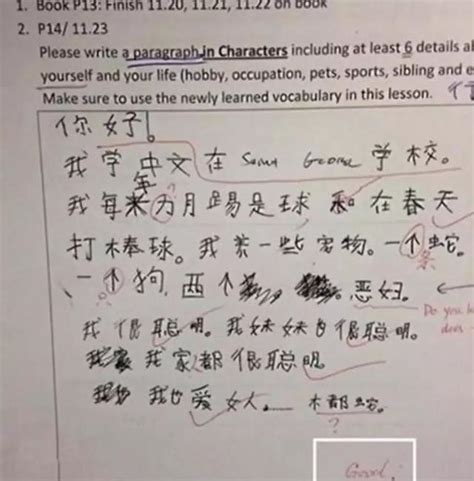 1. Book P13: Finish 11.20, 11.21, 11.22 on book
2. P14/ 11.23
Please write a paragraph in Characters including at least 6 details al
yourself and your life (hobby, occupation, pets, sports, sibling and e
Make sure to use the newly learned vocabulary in this lesson.
你好!
我学中文在 George 学校。
年 ?
我每来为月踢足球和在春天
打棒球。我养一些宠物。一个蛇。
条
一个狗, 西个 。恶妇。
只
Do you k
does
我很聪明。我妹妹也很聪明。
我家都很聪明。
我也爱女人。 木都蛇。
?
Good!